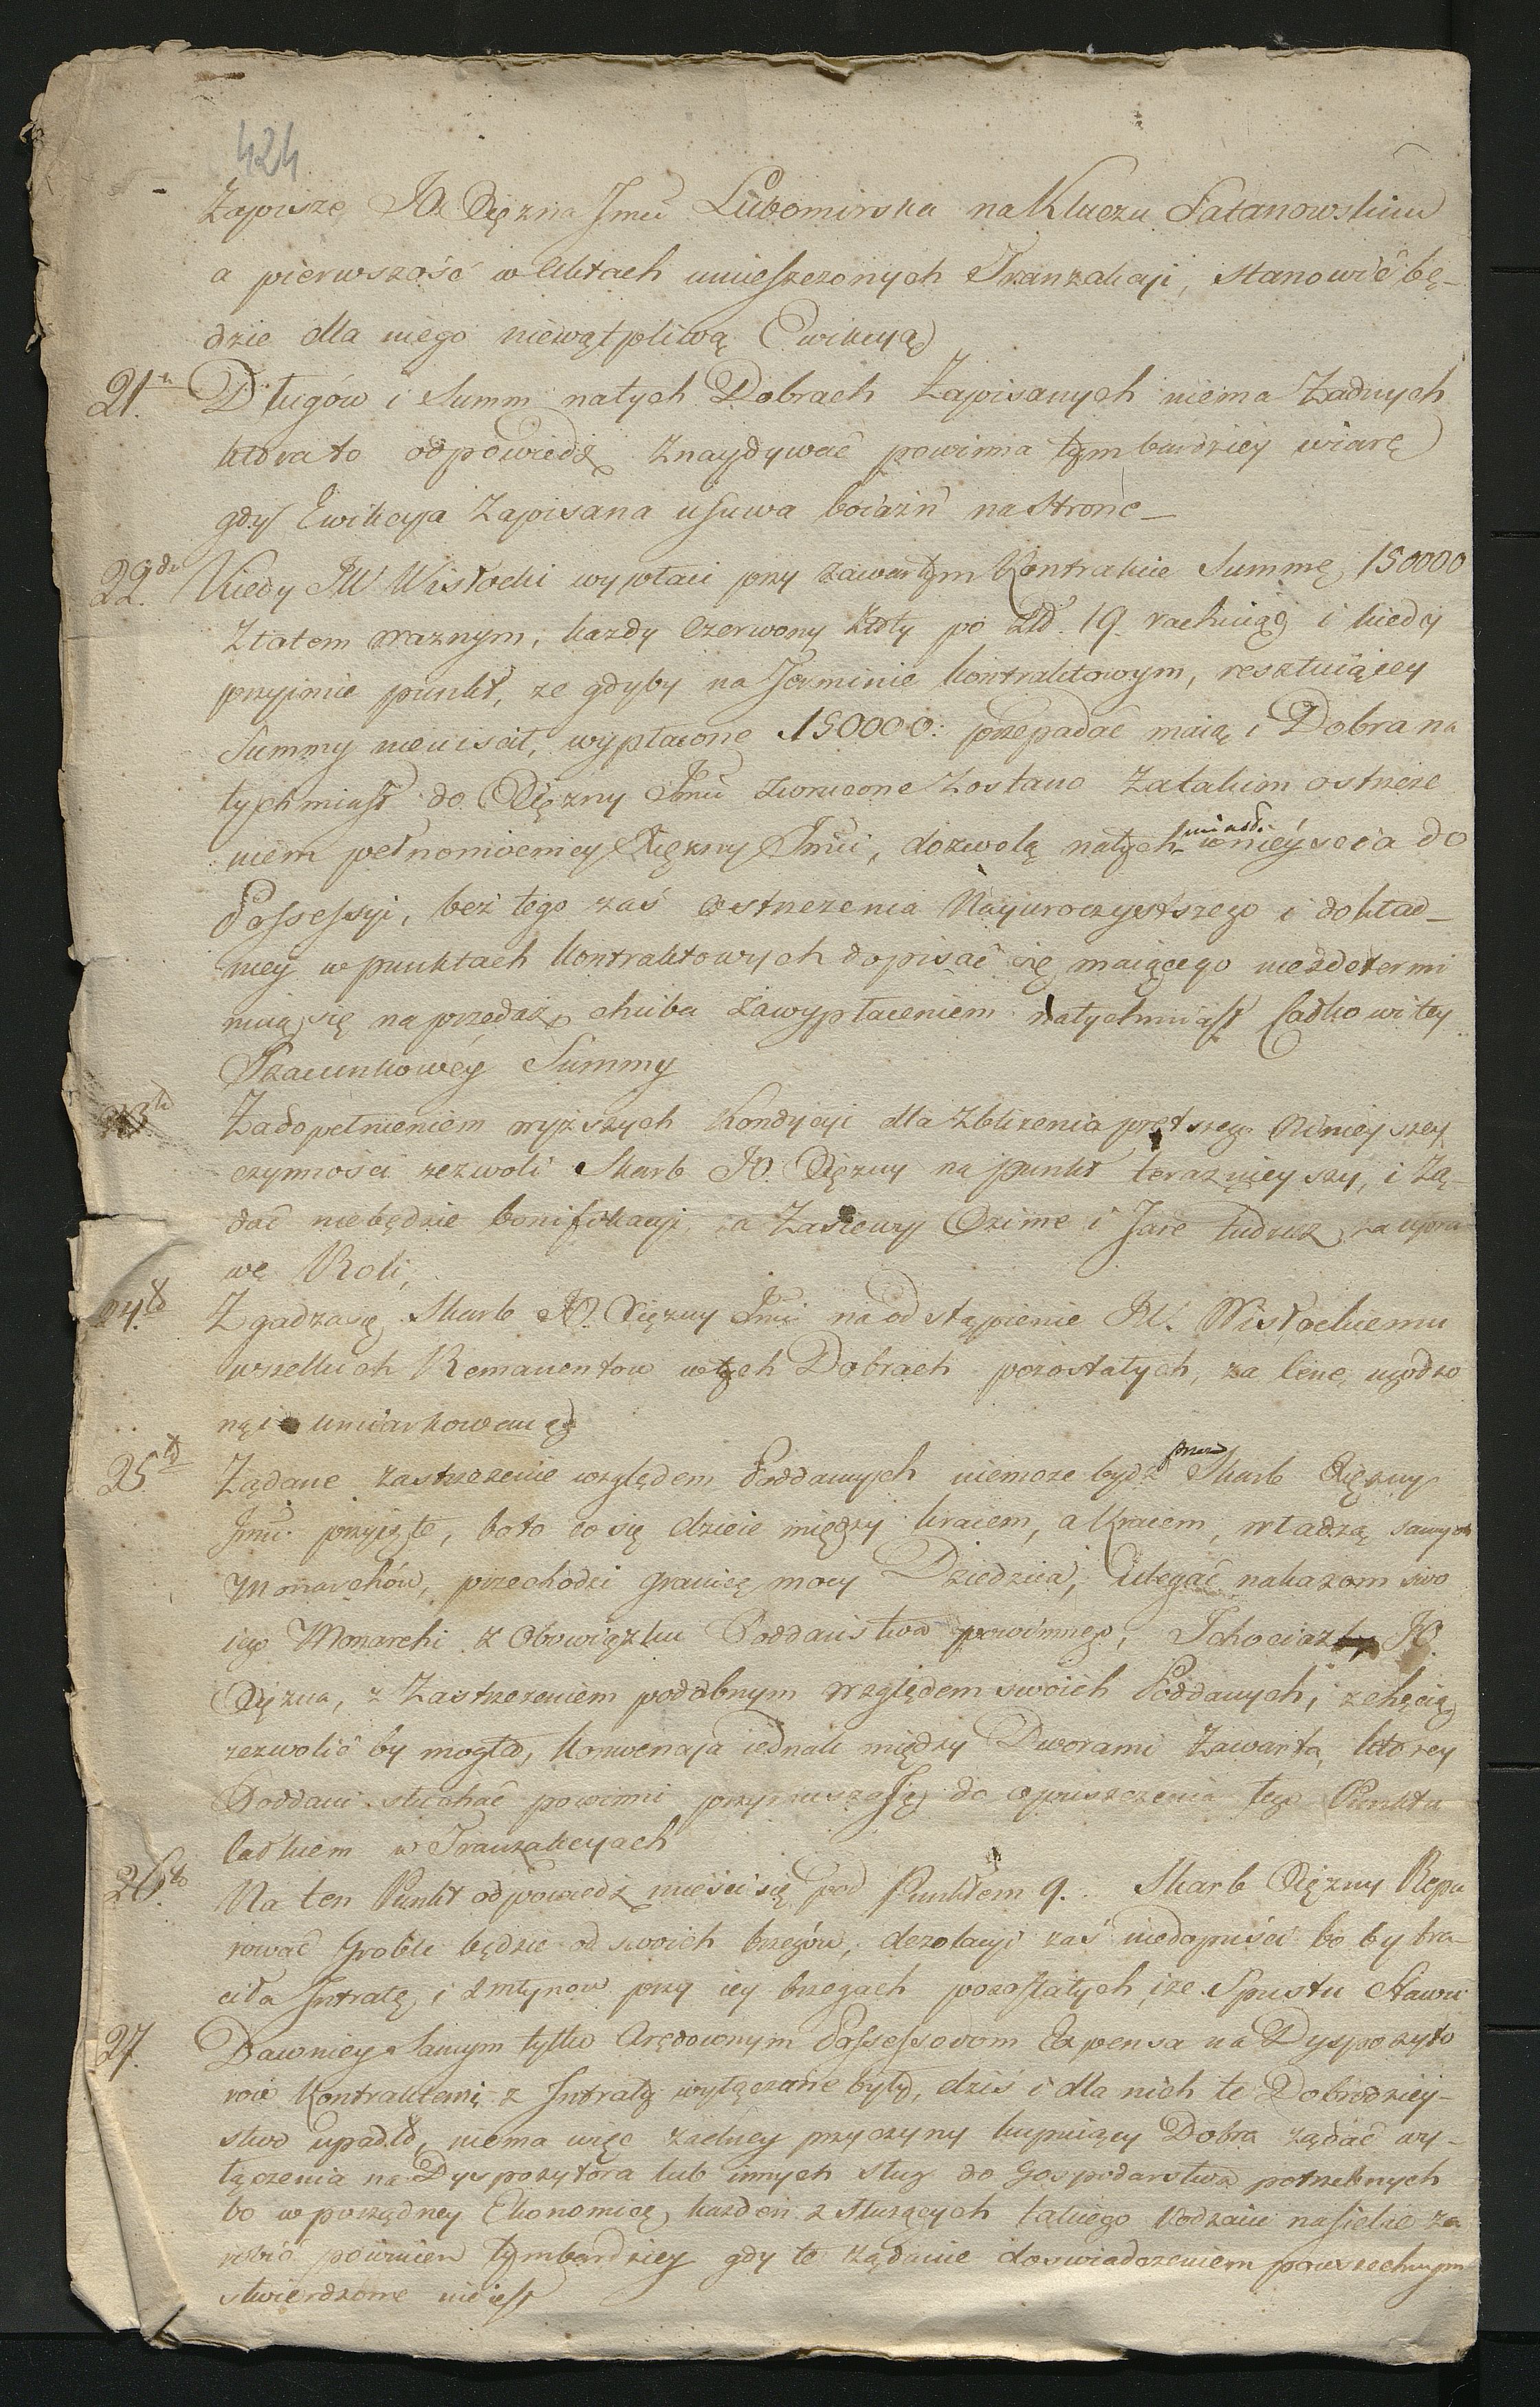 424
Zapisze JO. Xiężna Jmci Lubomirska na Kluczu Satanowskim
a pierwszość w Aktach umieszczonych Tranzakcji, stanowić bę-
dzie dla niego niewątpliwą Ewikcyą
21. Długów i Summ natych Dobrach Zapisanych niema Żadnych
która to odpowiedź znaydywać powinna tym bardziey wiarę
gdy Ewikcya Zapisana usuwa boiaźń na stronę_
22do. Kiedy JW Wisłocki wypłaci przy zawartym Kontrakcie Summę 150000
Złotem ważnym, każdy Czerwony Złoty po Złł. 19. rachuiąc i kiedy
przyimie punkt, że gdyby na Terminie kontraktowym, resztuiącey
Summy nieuiścił, wypłacone 150000: przepadać maią i Dobra na
tychmiast do Xiężny Jmci zwrócone zostano Zatakim ostrzeże
niem pełnomocnicy Xiężny Jmci, dozwolą natych-miast wnieyścia do
Possessyi, bez tego zaś Ostrzeżenia Nayuroczystszego i dokład_
niey w punktach kontraktowych dopisać się maiącego niezdetermi
nuią się na przedaż, chiba Zawypłaceniem natychmiast Całkowitey
Szacunkowéy Summy
23tio Zadopełnieniem wyższych Kondycyi dla Zbliżenia prętszego Ninieyszey
czynności zezwoli Skarb JO. Xiężny na punkt teraznieyszy, i Żą-
dać niebędzie bonifikacyi, a Zasiewy Ozime i Jare tudzież za upra
wę Roli,
24to. Zgadzasię Skarb JO. Xiężny Jmci na odstąpienie JW. Wisłockiemu
wszelkich Remanentow wtych Dobrach pozostałych, za Cenę ugodzo
nę i umiarkowaną
25to Żądane zastrzeżenie względem Poddanych niemoże bydź przez Skarb Xiężny
Jmci. przyięte, bo to co się dzieie między kraiem, a Kraiem, władzą samych
Monarchów, przechodzi granicę mocy Dziedzica, Ulegać nakazom swo
iego Monarchi z Obowiązku Poddaństwa powinnego, I chociaż JO.
Xiężna, z Zastrzeżeniem podobnym względem swoich Poddanych, z chęcią
zezwolić by mogła, konwencyja iednak między Dworami Zawarta, którey
Poddani słuchać powinni przymuszasię do opuszczenia tego Punktu
całkiem w Tranzakcyach
26to. Na ten Punkt odpowiedź mieści się pod Punktem 9.. Skarb Xiężny Repa
rować Groble będzie od swoich brzegów, dezolacyi zaś niedopuści bo by tra-
ciła Intratę, i z młynow przy iey brzegach pozostałych, i ze Spustu Stawu
27. Dawniey samym tylko Arędownym Possessorom Expensa na Dyspozyto
rów Kontraktami z Intraty wyłączane były, dziś i dla nich te Dobrodziey-
stwo upadło, niema więc żadney przyczyny kupuiący Dobra żądać wy-
łączenia na Dyspozytora lub innych sług do Gospodarstwa potrzebnych
bo w porządney Ekonomice każden z służących takiego Rodzaiu nasiebie za
robić powinien tymbardziey gdy te żądanie doswiadczeniem powszechnym
stwierdzone nieiest